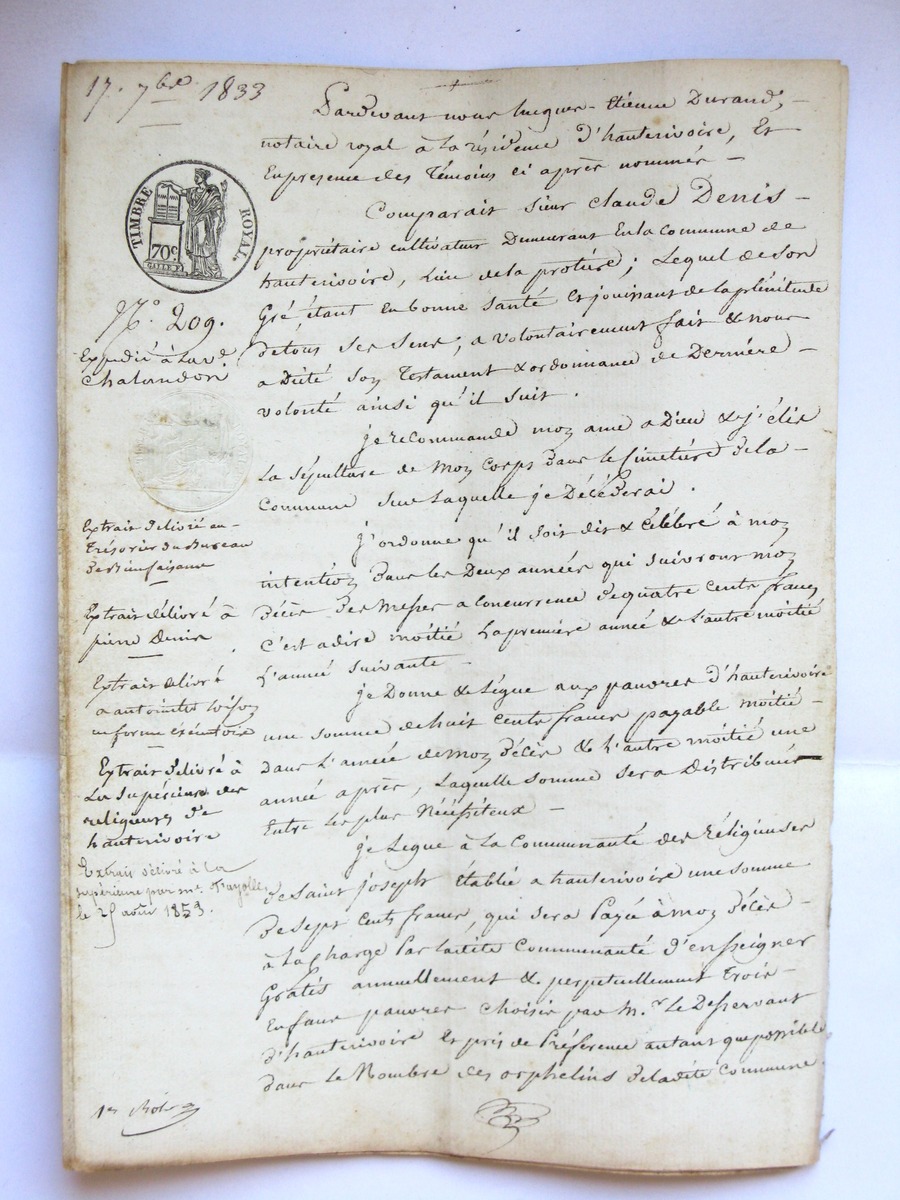 17. 7bre 1833
TIMBRE ROYAL
70c
N.o 209.
Expédié à la vd
Chalandon
Extrait délivré au
Trésorier du Bureau
de Bienfaisance
Extrait délivré à
pierre Denis
Extrait délivré
a antoinette
en forme éxécutoire
Extrait délivré à
La Supérieure des
religieuses d'e
hauterivoire
Extrait délivré à la
supérieure par me. Fayolle,
le 25 août 1853.
Pardevant nous hugues-Etienne Durand,
notaire royal à la résidence d'hauterivoire, Et
En presence des Témoins ci après nommés
Comparait Sieur Claude Denis
propriétaire cultivateur Demeurant En la Commune de
hauterivoire, Lieu de la ; Lequel de son
Gré étant En bonne Santé et jouissant de la plénitude
de tous ses sens, a volontairement fait & nous
a Dicté son Testament & ordonnance de Dernière
volonté ainsi qu'il suit.
je recommande mon ame a Dieu & j'élis
La sépulture de mon corps dans le simetière de la
Commune sur Laquelle je Décéderai.
j'ordonne qu'il soit dit & Célébré à mon
intention Dans les Deux années qui suivront mon
Décès Des Messes a concurrence de quatre cents francs
C'est a dire moitié La première année & L'autre moitié
L'année suivante
je Donne & Lègue aux pauvres d'hauterivoire
une somme de huit cents francs payable moitié
dans L'année de mon Décès & L'autre moitié une
année après, Laquelle somme sera Distribuée
Entre les plus Nécéssiteux
je Legue à La Communauté des Réligieuses
de Saint joseph établie a hauterivoire une somme
De sept cents francs, qui sera Payé à mon Décès
à La charge Par ladite Communauté d'enseigner
Gratis annuellement & perpetuellement Trois
Enfans pauvres choisis par M.r le Desservant
d'hauterivoire Et pris de Préférence autant que possible
dans le Nombre des orphelins de ladite Commune
1er Role